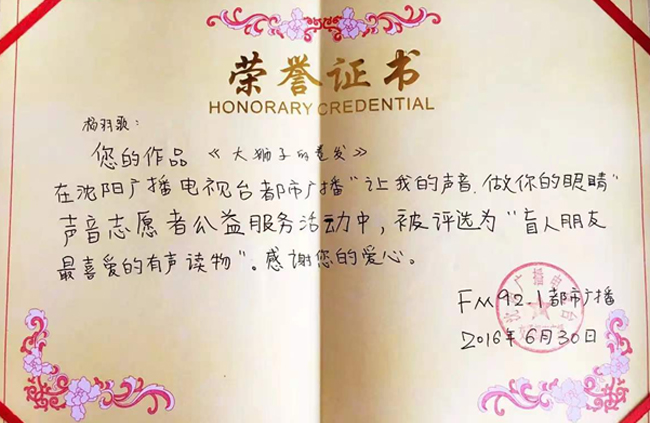 荣誉证书
HONORARY CREDENTIAL
杨羽歌：
您的作品《大狮子的卷发》
在沈阳广播电视台都市广播“让我的声音.做你的眼睛”
声音志愿者公益服务活动中，被评选为“盲人朋友
最喜爱的有声读物”。感谢您的爱心。
FM92.1都市广播
2016年6月30日